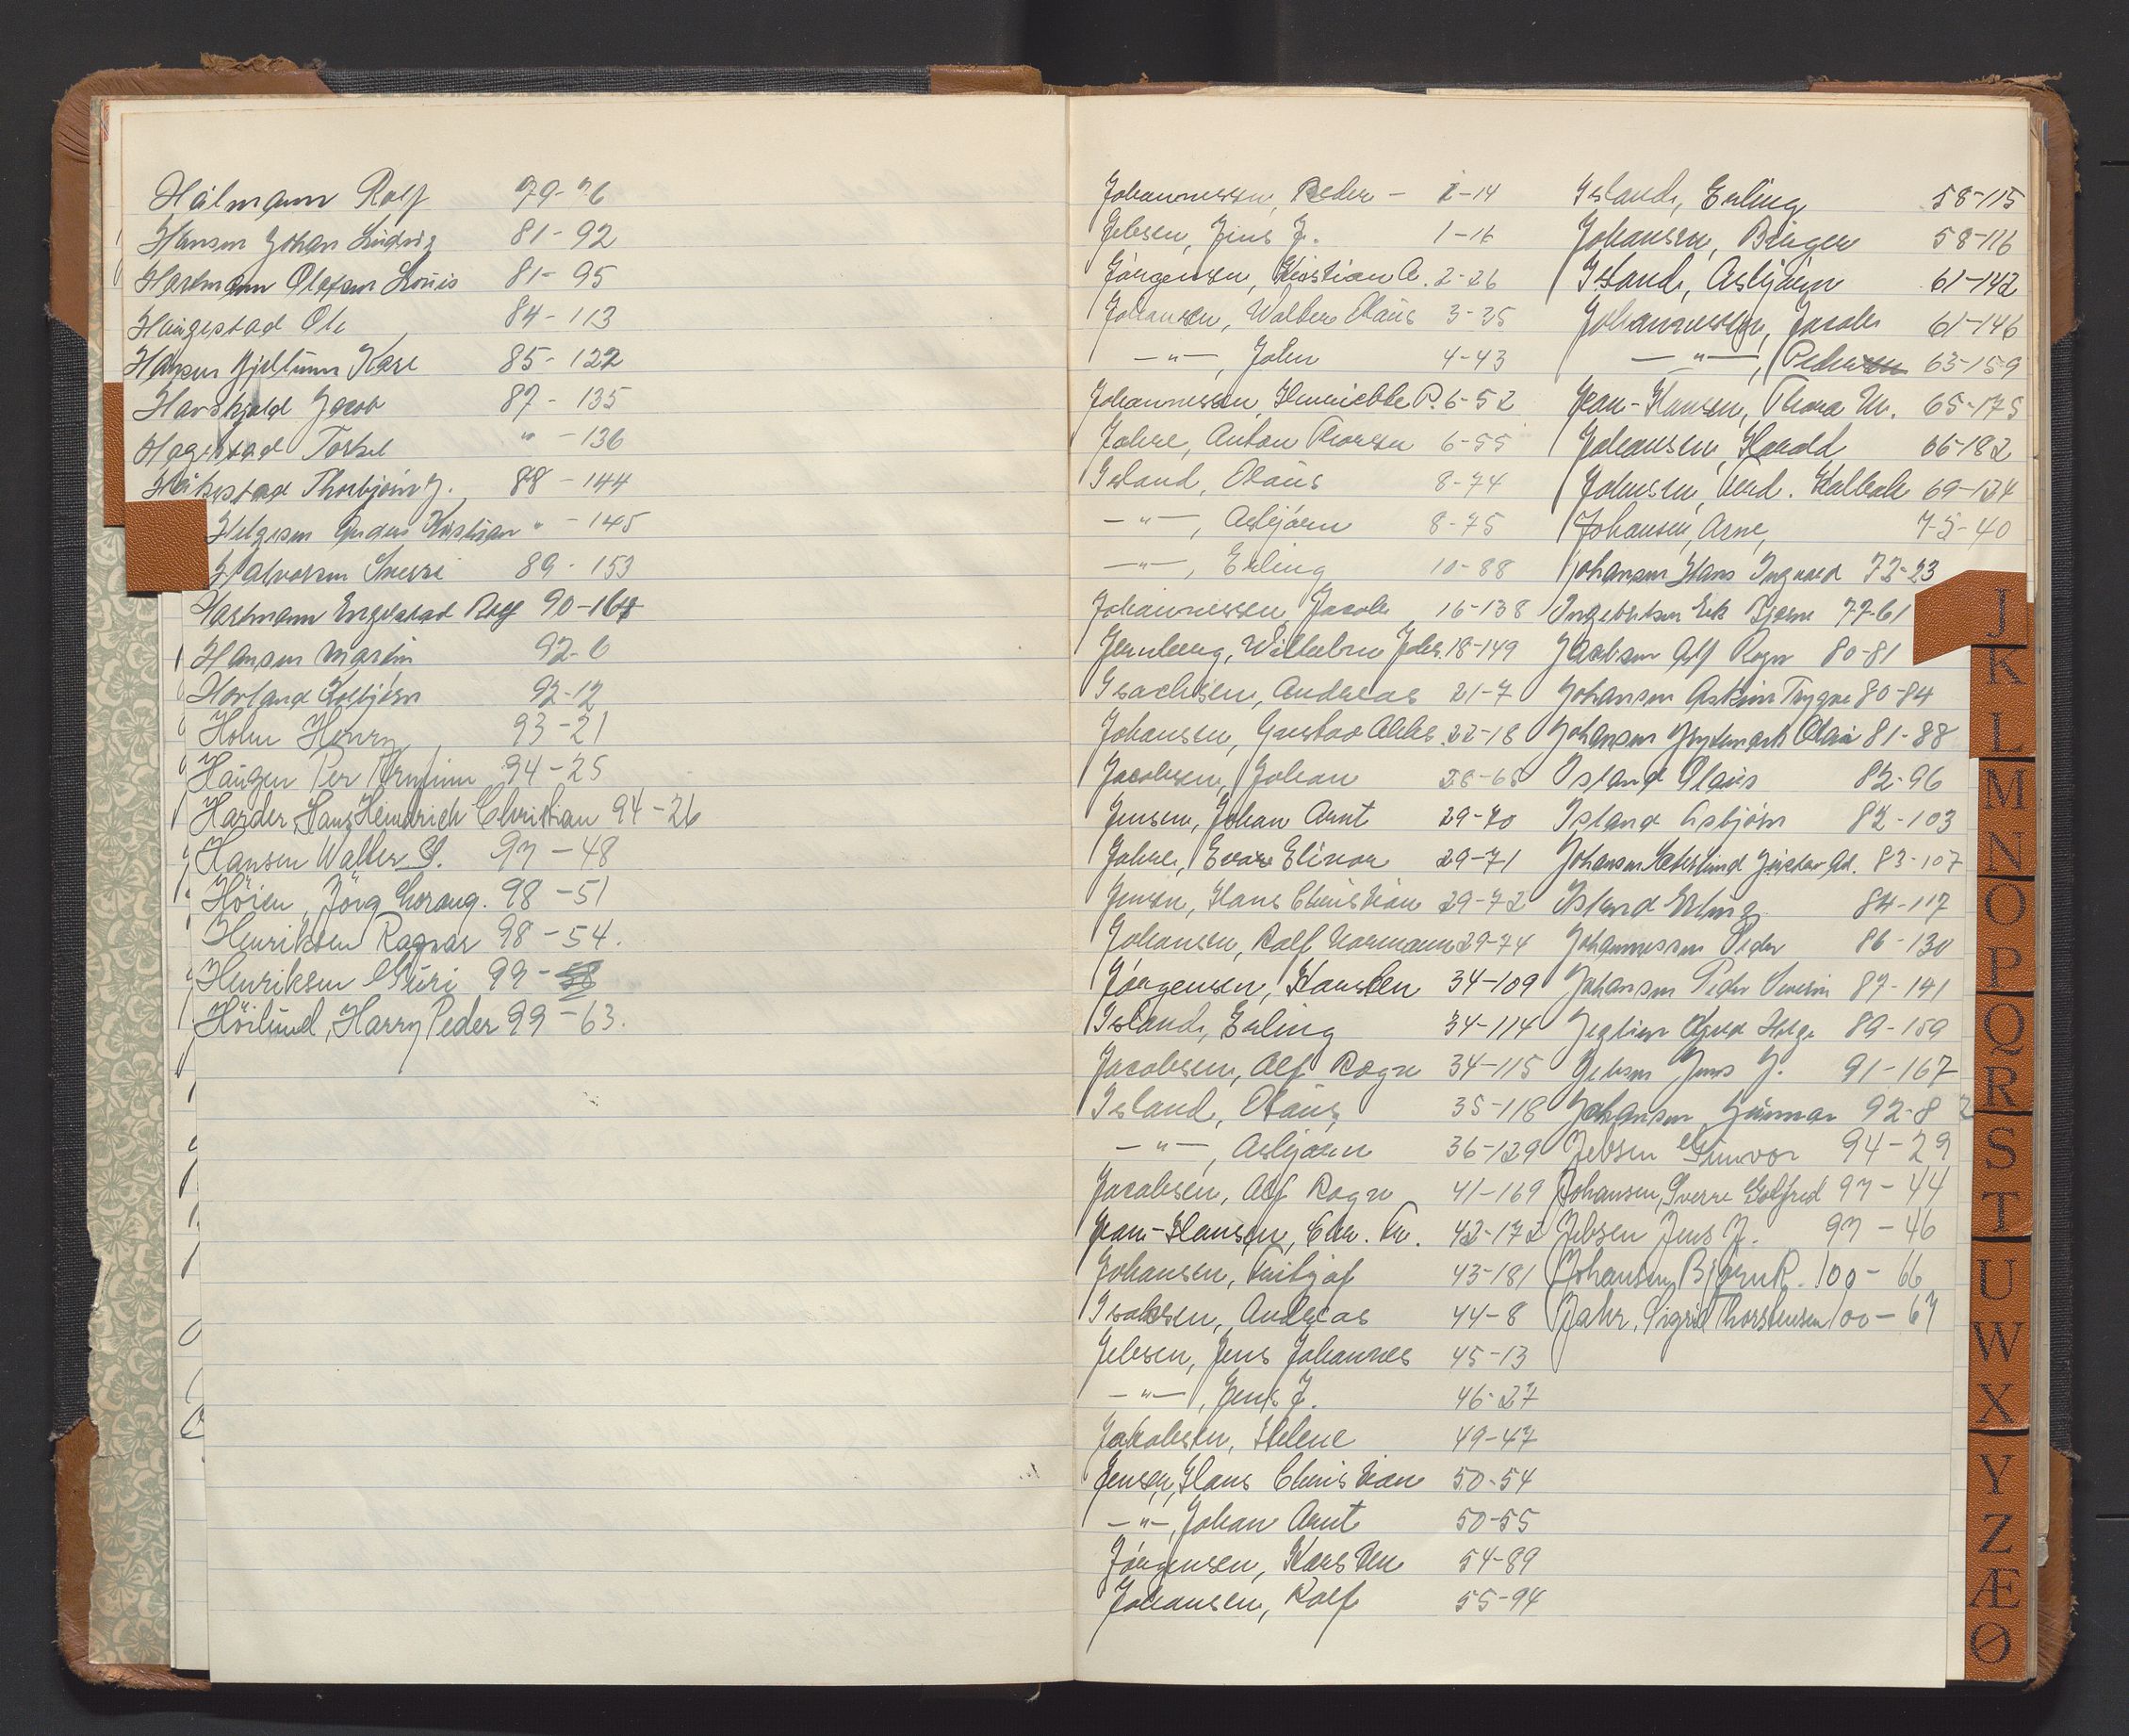 Hálmann Rolf 79-76
Hansen Johan Ludvig 81-92
Hartmann Olafsen Louis 81-95
Haugestad Ole 84-113
Hansen Kåre 85-122
Havskjold Jacob 87-135
Hagestad Torkel " -136
Thorbjörn J. 88-144
Helgesen Anders Kristian " -145
Halvorsen Sverre 89-153
Hartmann Engelstad Rolf 90-164
Hansen Martin 92-6
Hovland Kolbjörn 92-12
Holm Henry 93-21
Haugen Per Arnfinn 94-25
Harder, Hans Heindrich Christian 94-26
Hansen Walter S. 97-48
Höien, Jörg 98-51
Henriksen Ragnar 98-54.
Henriksen Guri 99-58
Höilund, Harry Peder 99-63.
Johannessen, Peder - 1-14
Jebsen, Jens J. 1-16
Jörgensen, Kristian A. 2-26
Johansen, Walter Olaus 3-35
-"-, John 4-43
Johannessen, Henriette P. 6-52
Jahre, Anton Thoresen 6-55
Island, Olaus 8-74
-"-, Asbjörn 8-75
-"-, Erling 10-88
Johannessen, Jacob 16-138
Jernberg, Wilhelm Johs. 18-149
Isachsen, Andreas 21-7
Johansen, Gustav Alb. 22-18
Jacobsen, Johan 28-68
Jensen, Johan Arnt 29-70
Jahre, Elinor 29-71
Jensen, Hans Christian 29-72
Johansen, Rolf Normann 29-74
Jörgensen, Karsten 34-109
Island, Erling 34-114
Jacobsen, Alf Rogn 34-115
Island, Olaus, 35-118
-"-, Asbjörn 36-129
Jacobsen, Alf Rogn 41-169
Jean-Hansen, Chr. Fr. 42-172
Johansen, Fritjof 43-181
Isaksen, Andreas 44-8
Jebsen, Jens Johannes 45-13
-"-, Jens J. 46-27
Jakobsen, Helene 49-47
Jensen, Hans Christian 50-54
-"-, Johan Arnt 50-55
Jörgensen, Karsten 54-89
Johansen, Rolf 55-94
Island, Erling 58-115
Johansen, Birger 58-116
Island, Asbjörn 61-142
Johannessen, Jacob 61-146
-"-, Peder 63-159
Jean-Hansen, Thora M. 65-175
Johansen, Harald 66-182
Johnsen, Ferd. Kalbak 69-134
Johansen, Arne, 75-40
Johansen Hans Ingvald 72-23
Ingebretsen Erik Bjarne 77-61
Jacobsen Alf Rogn 80-81
Johansen Trygve 80-84
Johansen Olav 81-88
Island Olaus 82-96
Island Asbjörn 82-103
Johansen Gustav Ad. 83-107
Island Erling 84-117
Johannessen Peder 86-130
Johansen Peder Severin 87-141
Helge 89-159
Jebsen Jens J. 91-167
Johansen Gunnar 92-8
Jebsen Gunvor 94-29
Johansen, Sverre Golfred 97-44
Jebsen Jens J. 97-46
Johansen, Björn R. 100-66
Jahr, Sigrid Thorstensen 100-67
J
K
L
M
N
O
P
Q
R
S
T
U
W
X
Y
Z
Æ
Ø